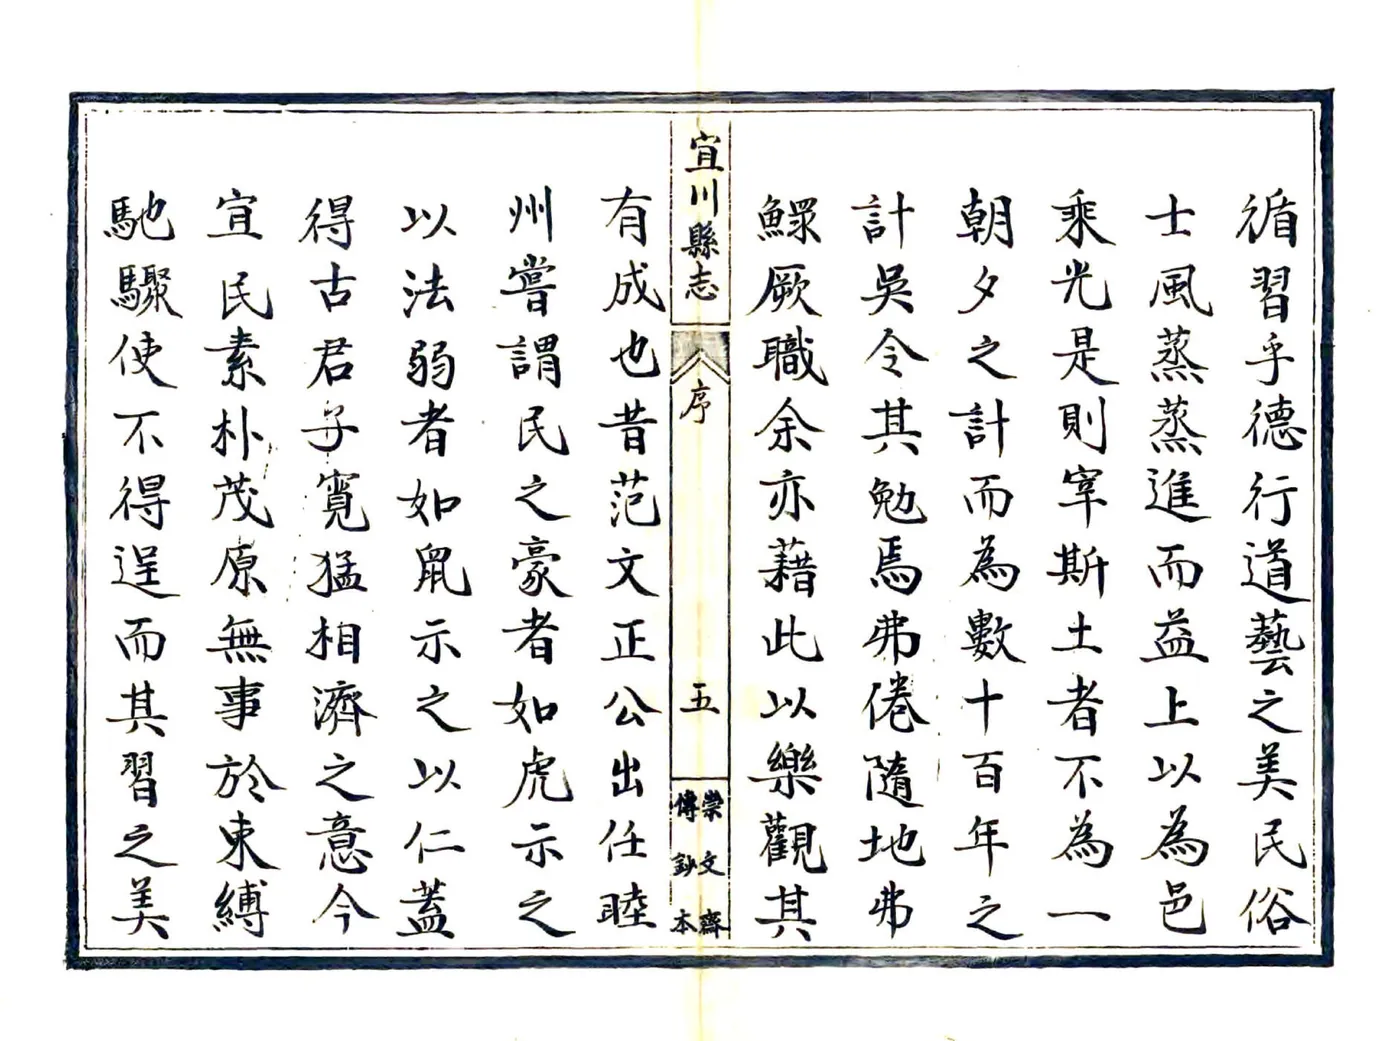 循習乎德行道藝之美民俗
士風蒸蒸進而益上以為邑
乘光是則宰斯土者不為一
朝夕之計而為數十百年之
計吳令其勉焉弗倦隨地弗
鰥厥職余亦藉此以樂觀其
宜川縣志
序
五
崇文齋
傳鈔本
有成也昔范文正公出任睦
州嘗謂民之豪者如虎示之
以法弱者如鼠示之以仁蓋
得古君子寬猛相濟之意今
宜民素朴茂原無事於束縛
馳驟使不得逞而其習之美